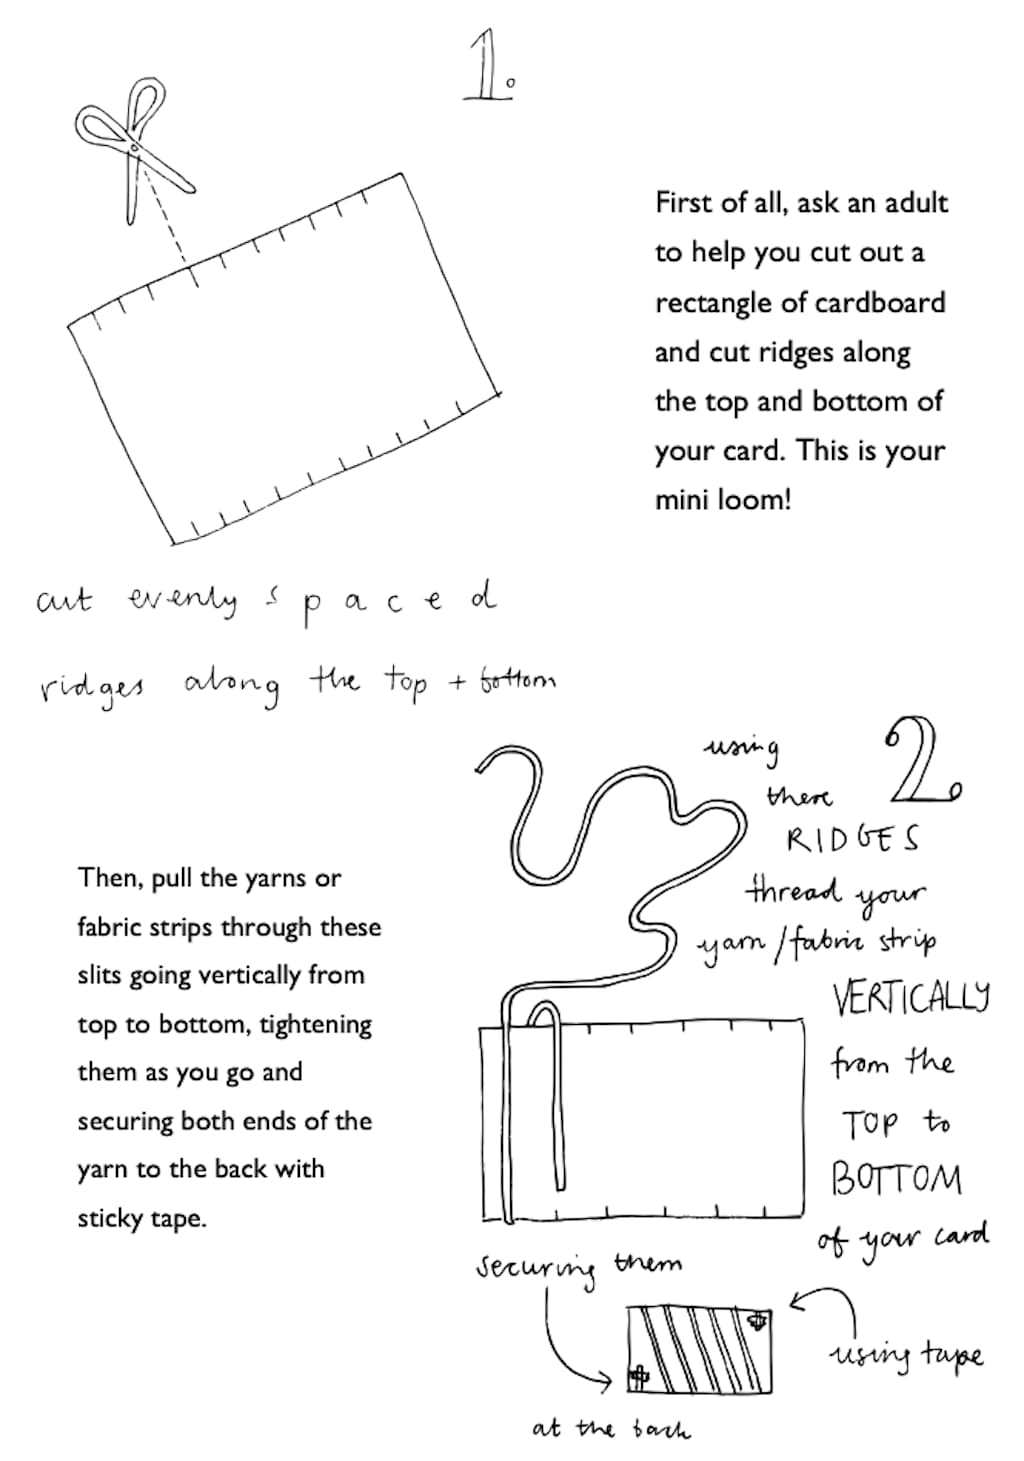 1.
First of all, ask an adult
to help you cut out a
rectangle of cardboard
and cut ridges along
the top and bottom of
your card. This is your
mini loom!
cut evenly spaced
ridges along the top + bottom
2.
using
there
RIDGES
thread your
yarn/fabric strip
VERTICALLY
from the
TOP to
BOTTOM
of your card
Then, pull the yarns or
fabric strips through these
slits going vertically from
top to bottom, tightening
them as you go and
securing both ends of the
yarn to the back with
sticky tape.
securing them
using tape
at the back